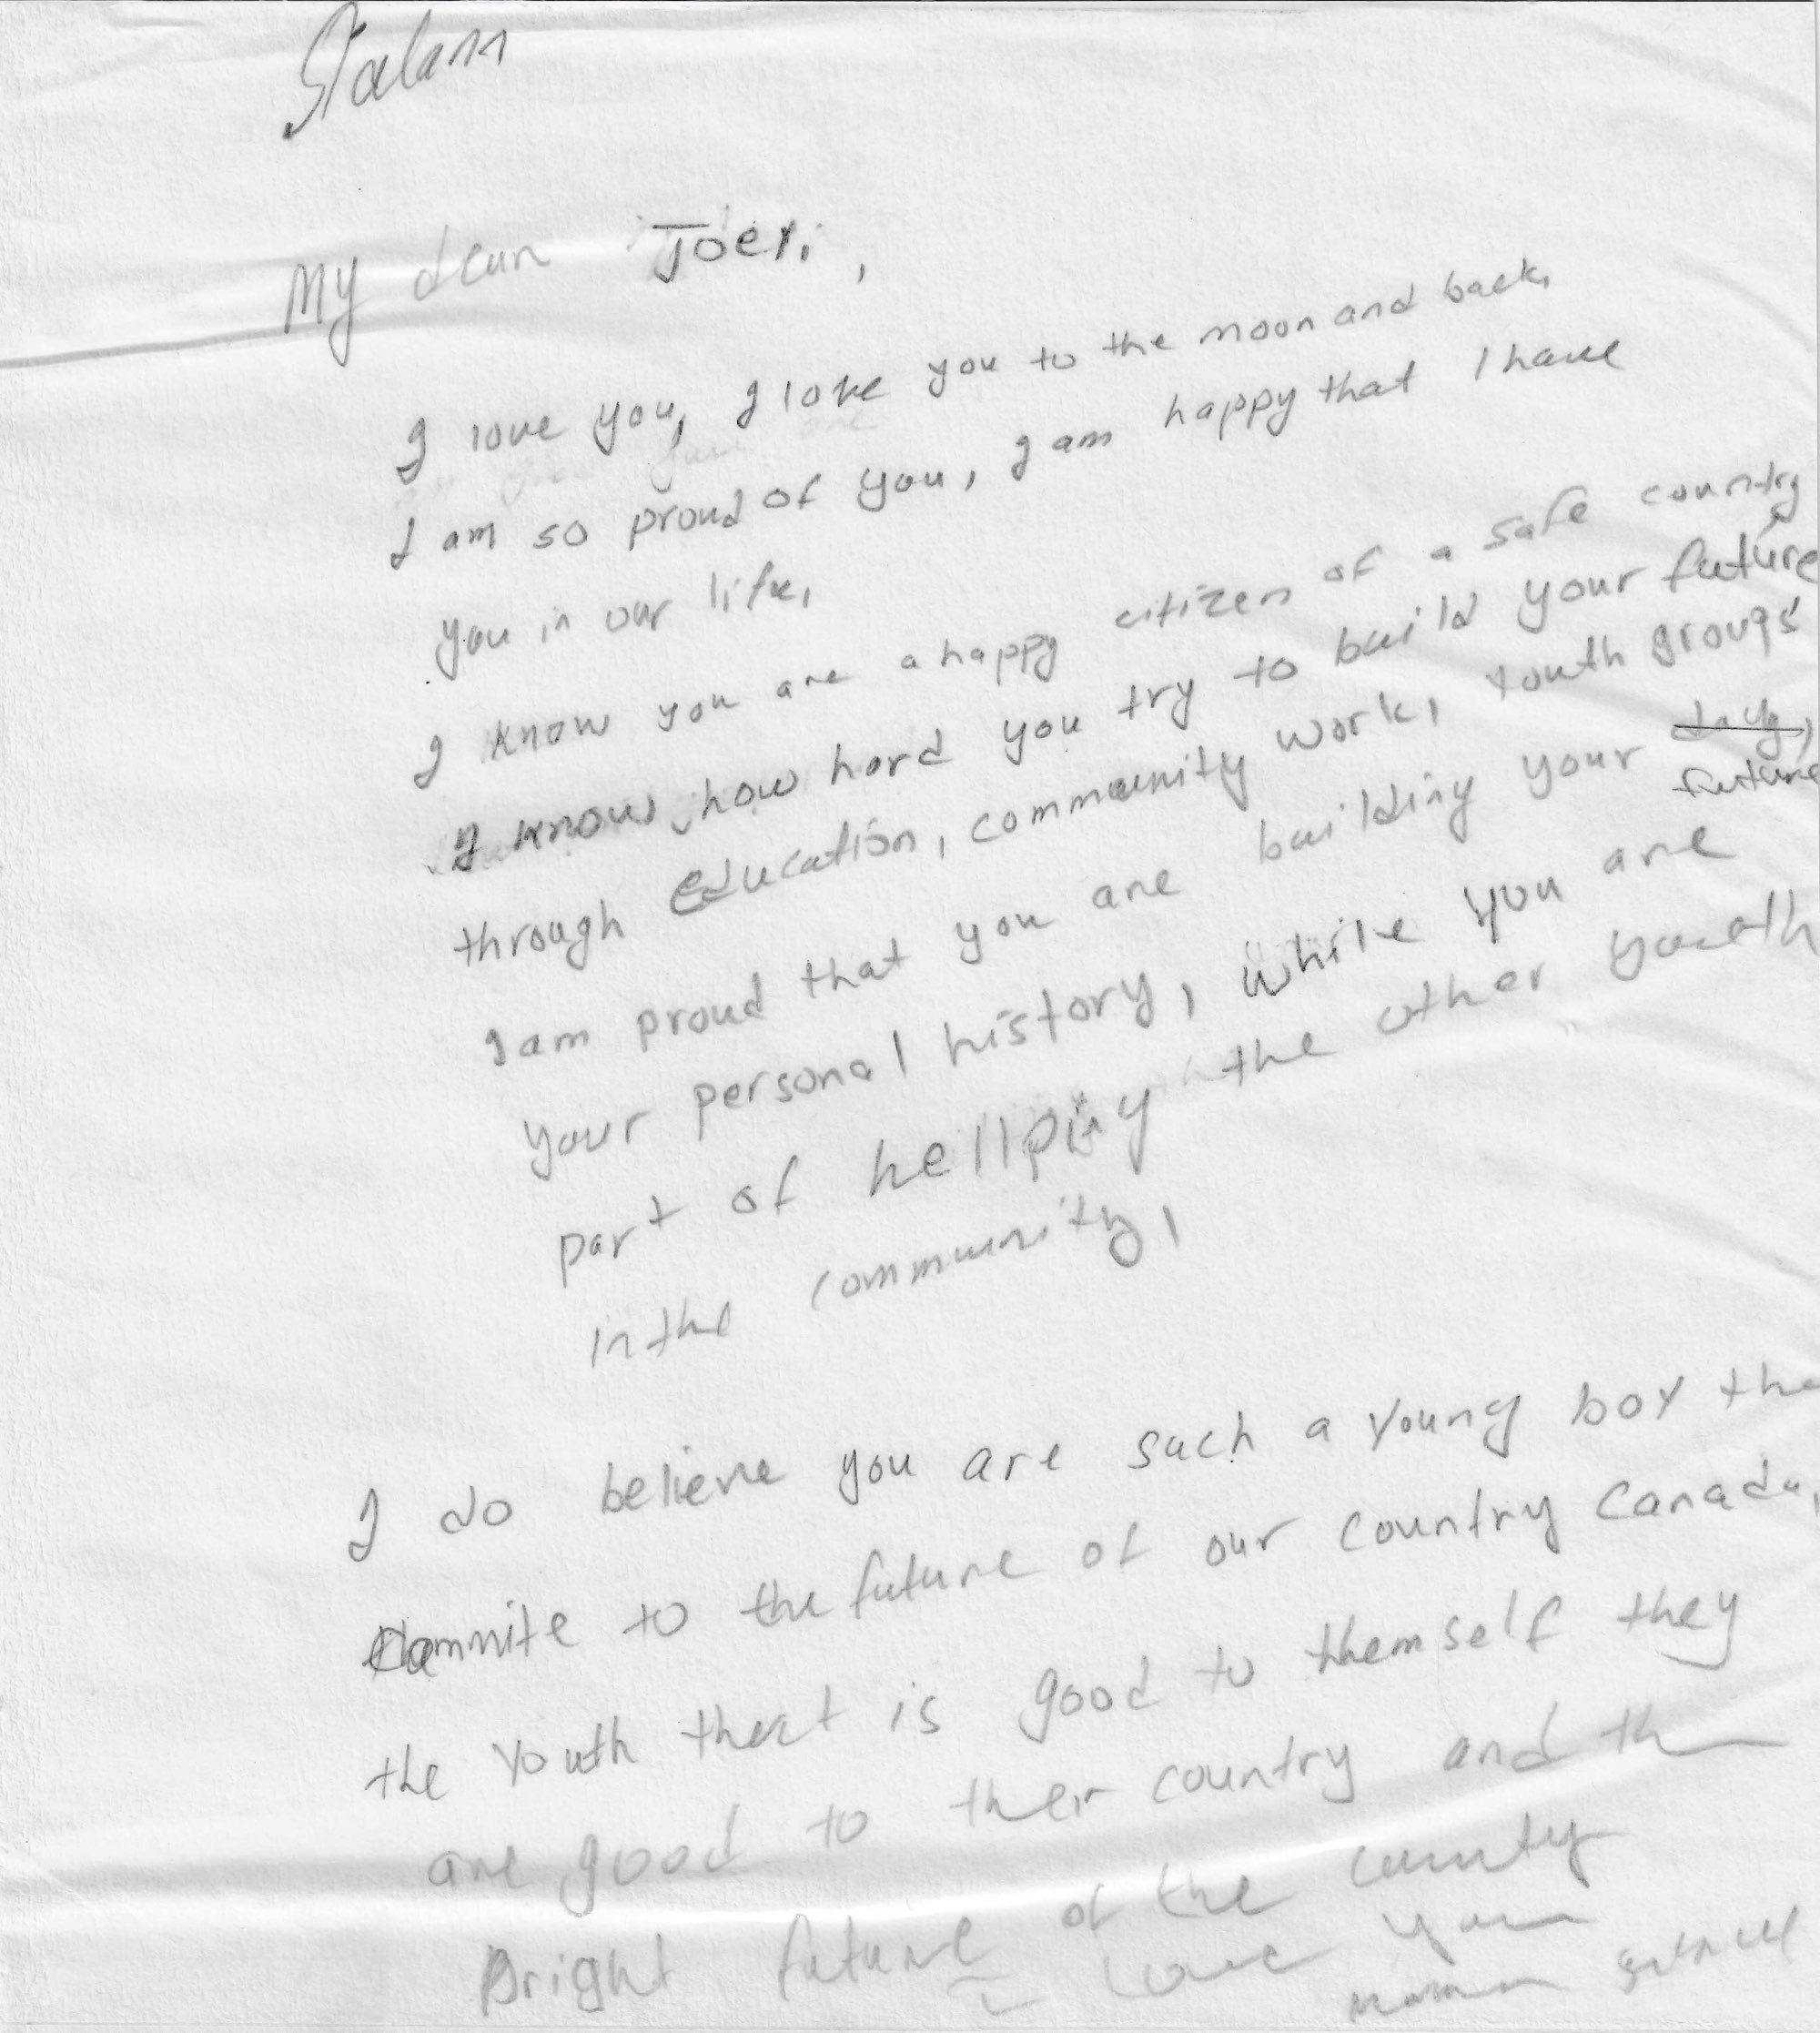 Salam
My dear Joel,
I love you, I love you to the moon and back,
I am so proud of you, I am happy that I have
you in our life,
I know you are a happy citizen of a safe country
I know how hard you try to build your future
through education, community work, Youth groups
I am proud that you are building your
future
your personal history, while you are
part of hellping the other youth
in the community,
I do believe you are such a young boy tha
Commite to the future of our country Canada,
the Youth that is good to themself they
are good to their country and th
Bright future of the country
Love you